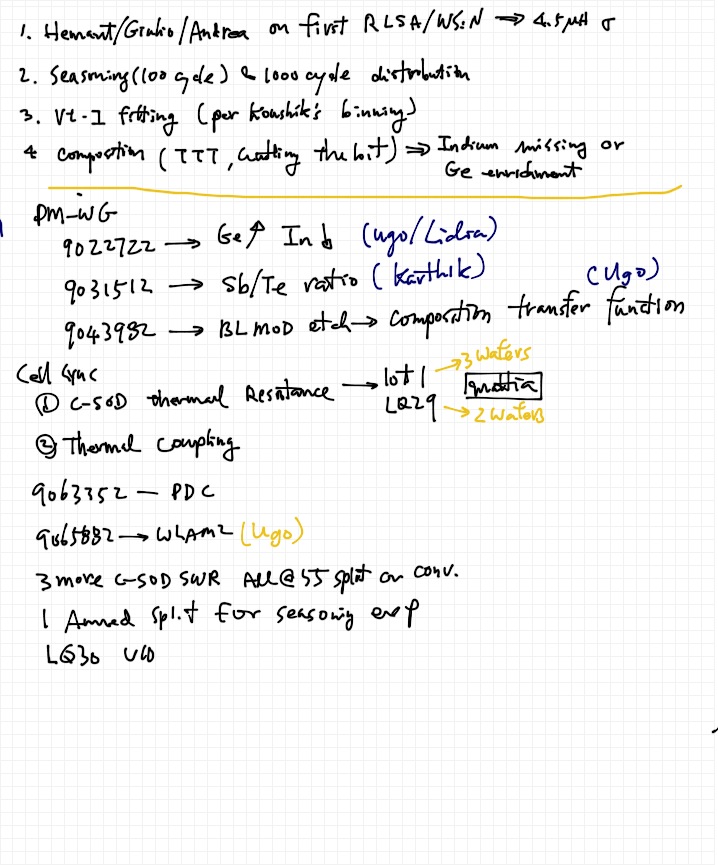 1. Hemant/Giulio/Andrea on first RLSA/WSiN ⇒ 4.5 μA σ
2. Seasoning (100 cycle) & 1000 cycle distribution
3. Vt-I fitting (per Koushik's binning)
4 Composition (TTT, the bit) ⇒ Indium missing or
Ge enrichment
PM-WG
9022722 → Ge↑ In↓ (Ugo/Lidia)
9031512 → Sb/Te ratio (Karthik)
(Ugo)
9043982 → BL MOD etch → Composition transfer function
Cell Sync
① C-SOD thermal Resistance → lot 1 → 3 Wafers
LQ29 → 2 Wafers
② Thermal Coupling
9063352 — PDC
9065882 → WLAM2 (Ugo)
3 more C-SOD SWR All @ 55 split on conv.
1 split for seasoning exp
LQ30